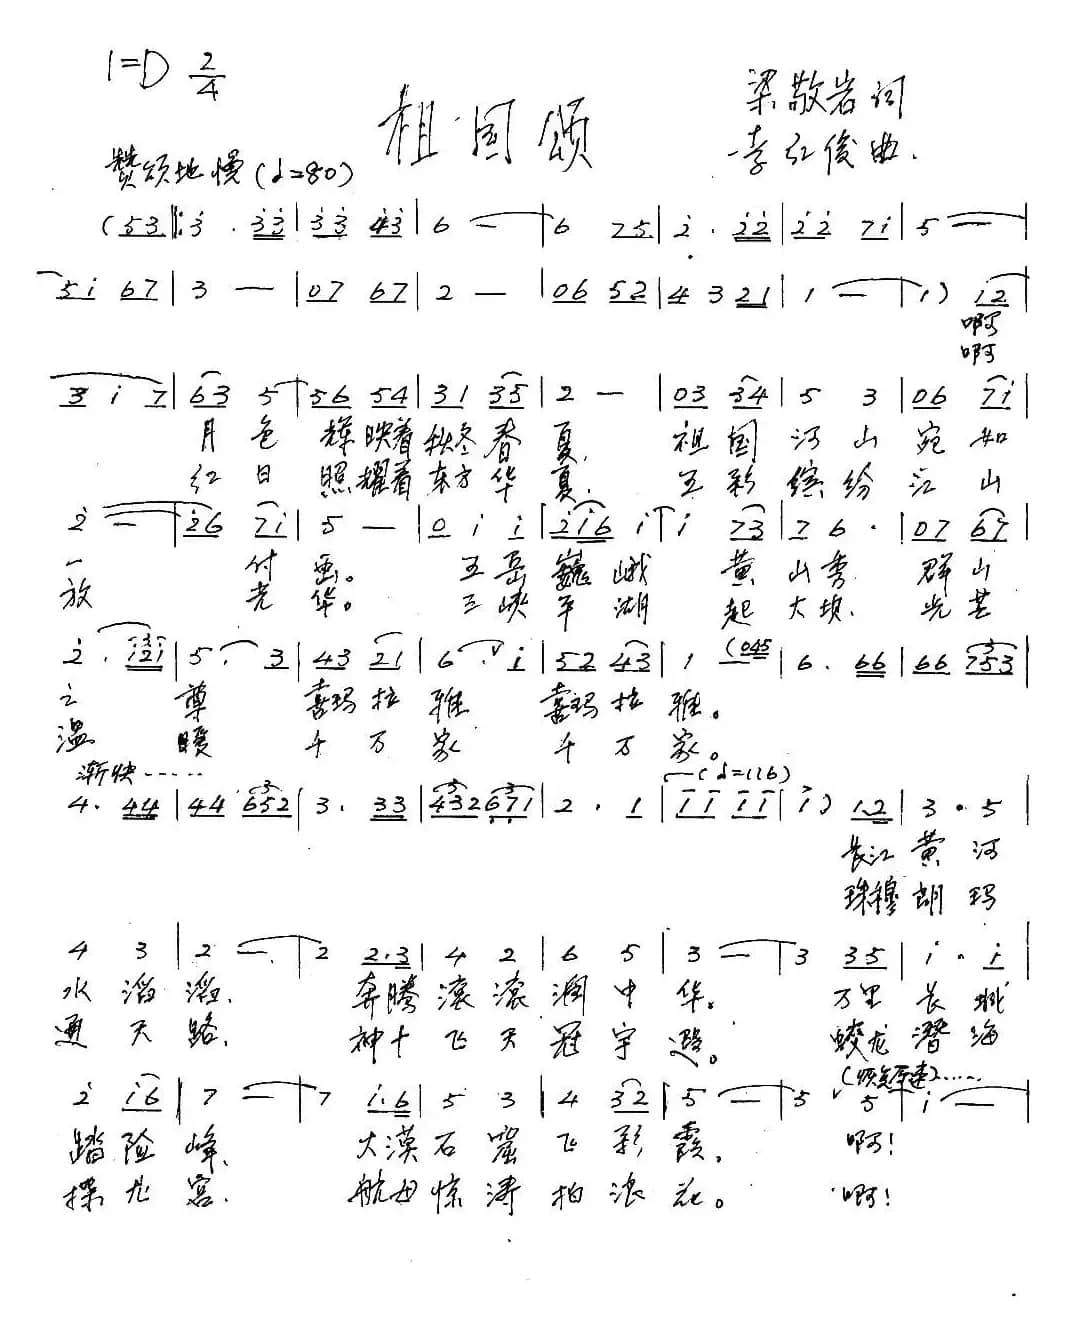 1=D 2/4
祖国颂
梁敬岩词
李红俊曲.
赞颂地慢(♩=80)
(53‖:3 . 33|33 43|6 —|6 75|2 . 22|22 71|5 —|
51 67|3 —|07 67|2 —|06 52|4 3 21|1 —|1) 12|
啊
啊
3 1 7|63 5|56 54|31 35|2 —|03 34|5 3|06 71|
月色 辉映着秋冬春夏, 祖国河山宛如
红日 照耀着东方华夏, 五彩缤纷江山
2 —|26 71|5 —|0 1 1|216 1|1 73|7 6 .|07 67|
一 付画。 五岳巍峨 黄山秀. 群山
放 光华。 三峡平湖 起大坝. 光芒
2 . 121|5 . 3|43 21|6 . ∨ 1|52 43|1 (045|6 . 66|66 753|
之 尊 喜玛拉雅 喜玛拉雅。
温 暖 千万家 千万家。
渐快……
4 . 44|44 652|3 . 33|432 671|2 . 1|11 11|1) 1.2|3 . 5|
(♩=116)
长江黄河
珠穆朗玛
4 3|2 —|2 2.3|4 2|6 5|3 —|3 35|1 . 1|
水滔滔, 奔腾滚滚润中华。 万里长城
通天路, 神十飞天冠宇遐。 蛟龙潜海
(恢复原速)……
2 16|7 —|7 1.6|5 3|4 32|5 —|5 ∨ 5|1 —|
踏险峰、 大漠石窟飞彩霞, 啊!
探龙宫. 航母惊涛拍浪花。 啊!